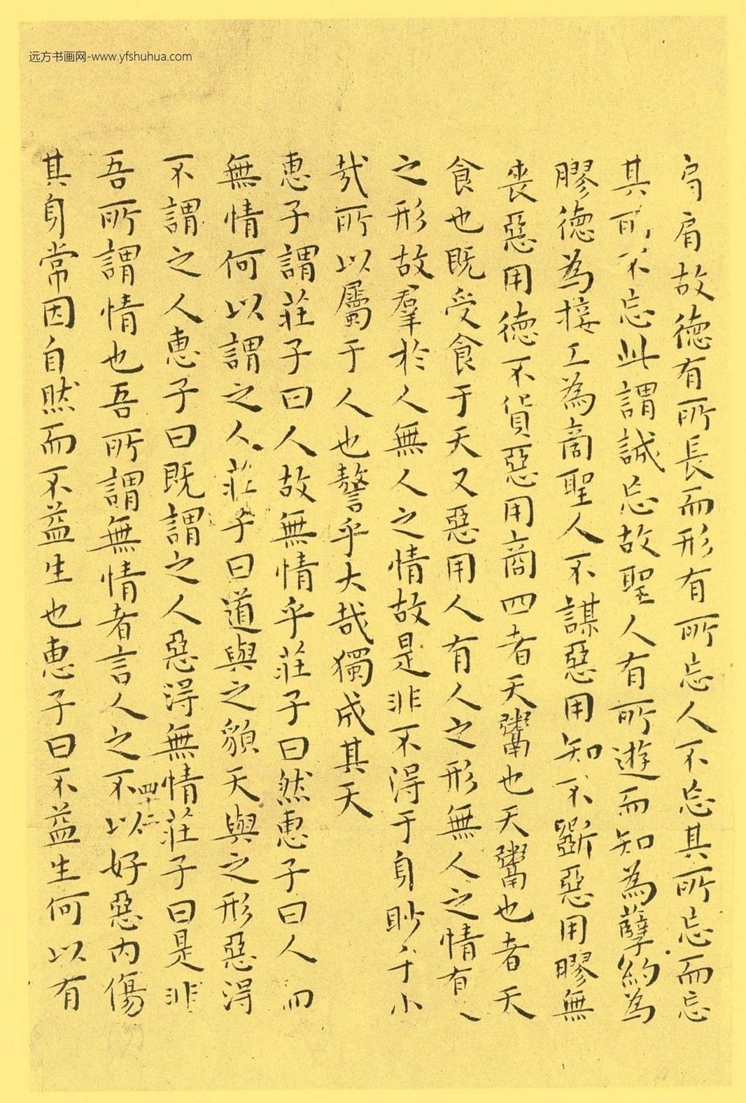 远方书画网-www.yfshuhua.com
肩肩故德有所長而形有所忘人不忘其所忘而忘
其所不忘此謂誠忘故聖人有所遊而知為孽約為
膠德為接工為商聖人不謀惡用知不斵惡用膠無
喪惡用德不貨惡用商四者天鬻也天鬻也者天
食也既受食于天又惡用人有人之形無人之情有人
之形故羣於人無人之情故是非不得于身眇乎小
哉所以屬于人也謷乎大哉獨成其天
惠子謂莊子曰人故無情乎莊子曰然惠子曰人而
無情何以謂之人莊子曰道與之貌天與之形惡得
不謂之人惠子曰既謂之人惡得無情莊子曰是非
四十二
吾所謂情也吾所謂無情者言人之不以好惡內傷
其身常因自然而不益生也惠子曰不益生何以有